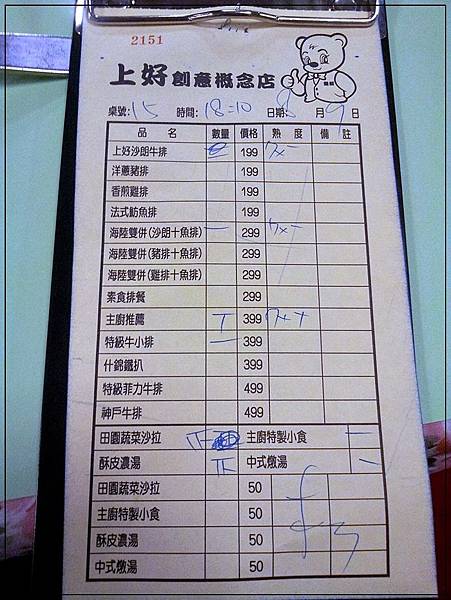 2151
上好創意概念店
桌號:15 時間:18:10 日期:8月9日
品名 數量 價格 熟度 備註
上好沙朗牛排 199
洋蔥豬排 199
香煎雞排 199
法式魴魚排 199
海陸雙併(沙朗十魚排) 一 299
海陸雙併(豬排十魚排) 299
海陸雙併(雞排十魚排) 299
素食排餐 299
主廚推薦 399
特級牛小排 一 399
什錦鐵扒 399
特級菲力牛排 499
神戶牛排 499
田園蔬菜沙拉 主廚特製小食
酥皮濃湯 中式燉湯 一
田園蔬菜沙拉 50
主廚特製小食 50
酥皮濃湯 50
中式燉湯 50